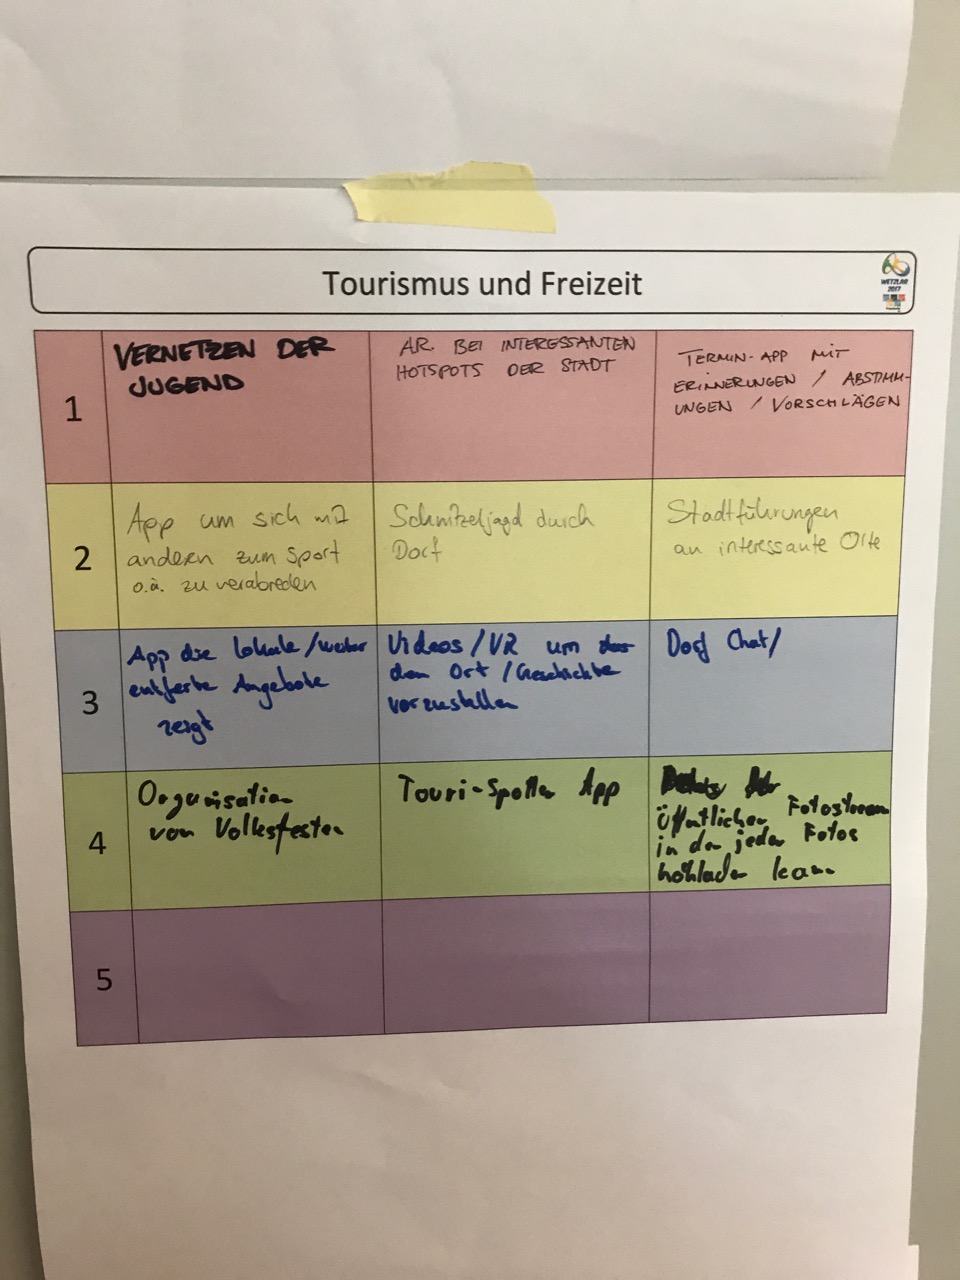 Tourismus und Freizeit
WETZLAR
2017
1
VERNETZEN DER
JUGEND
A.R. BEI INTERESSANTEN
HOTSPOTS DER STADT
TERMIN-APP MIT
ERINNERUNGEN / ABSTIMM-
UNGEN / VORSCHLÄGEN
2
App um sich mit
anderen zum Sport
o.ä. zu verabreden
Schnitzeljagd durch
Dorf
Stadtführungen
an interessante Orte
3
App die lokale/weiter
entfernte Angebote
zeigt
Videos/VR um
den Ort/Geschichte
vorzustellen
Dorf Chat/
4
Organisation
von Volksfesten
Touri-Spotter App
öffentlicher Fotostream
in den jeder Fotos
hochladen kann
5